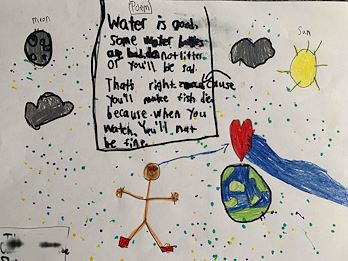 Poem
moon
Sun
Water is good.
Some water
do not litter
or you'll be sad.
That's right cause
You'll make fish die
because when you
watch, You'll not
be fine